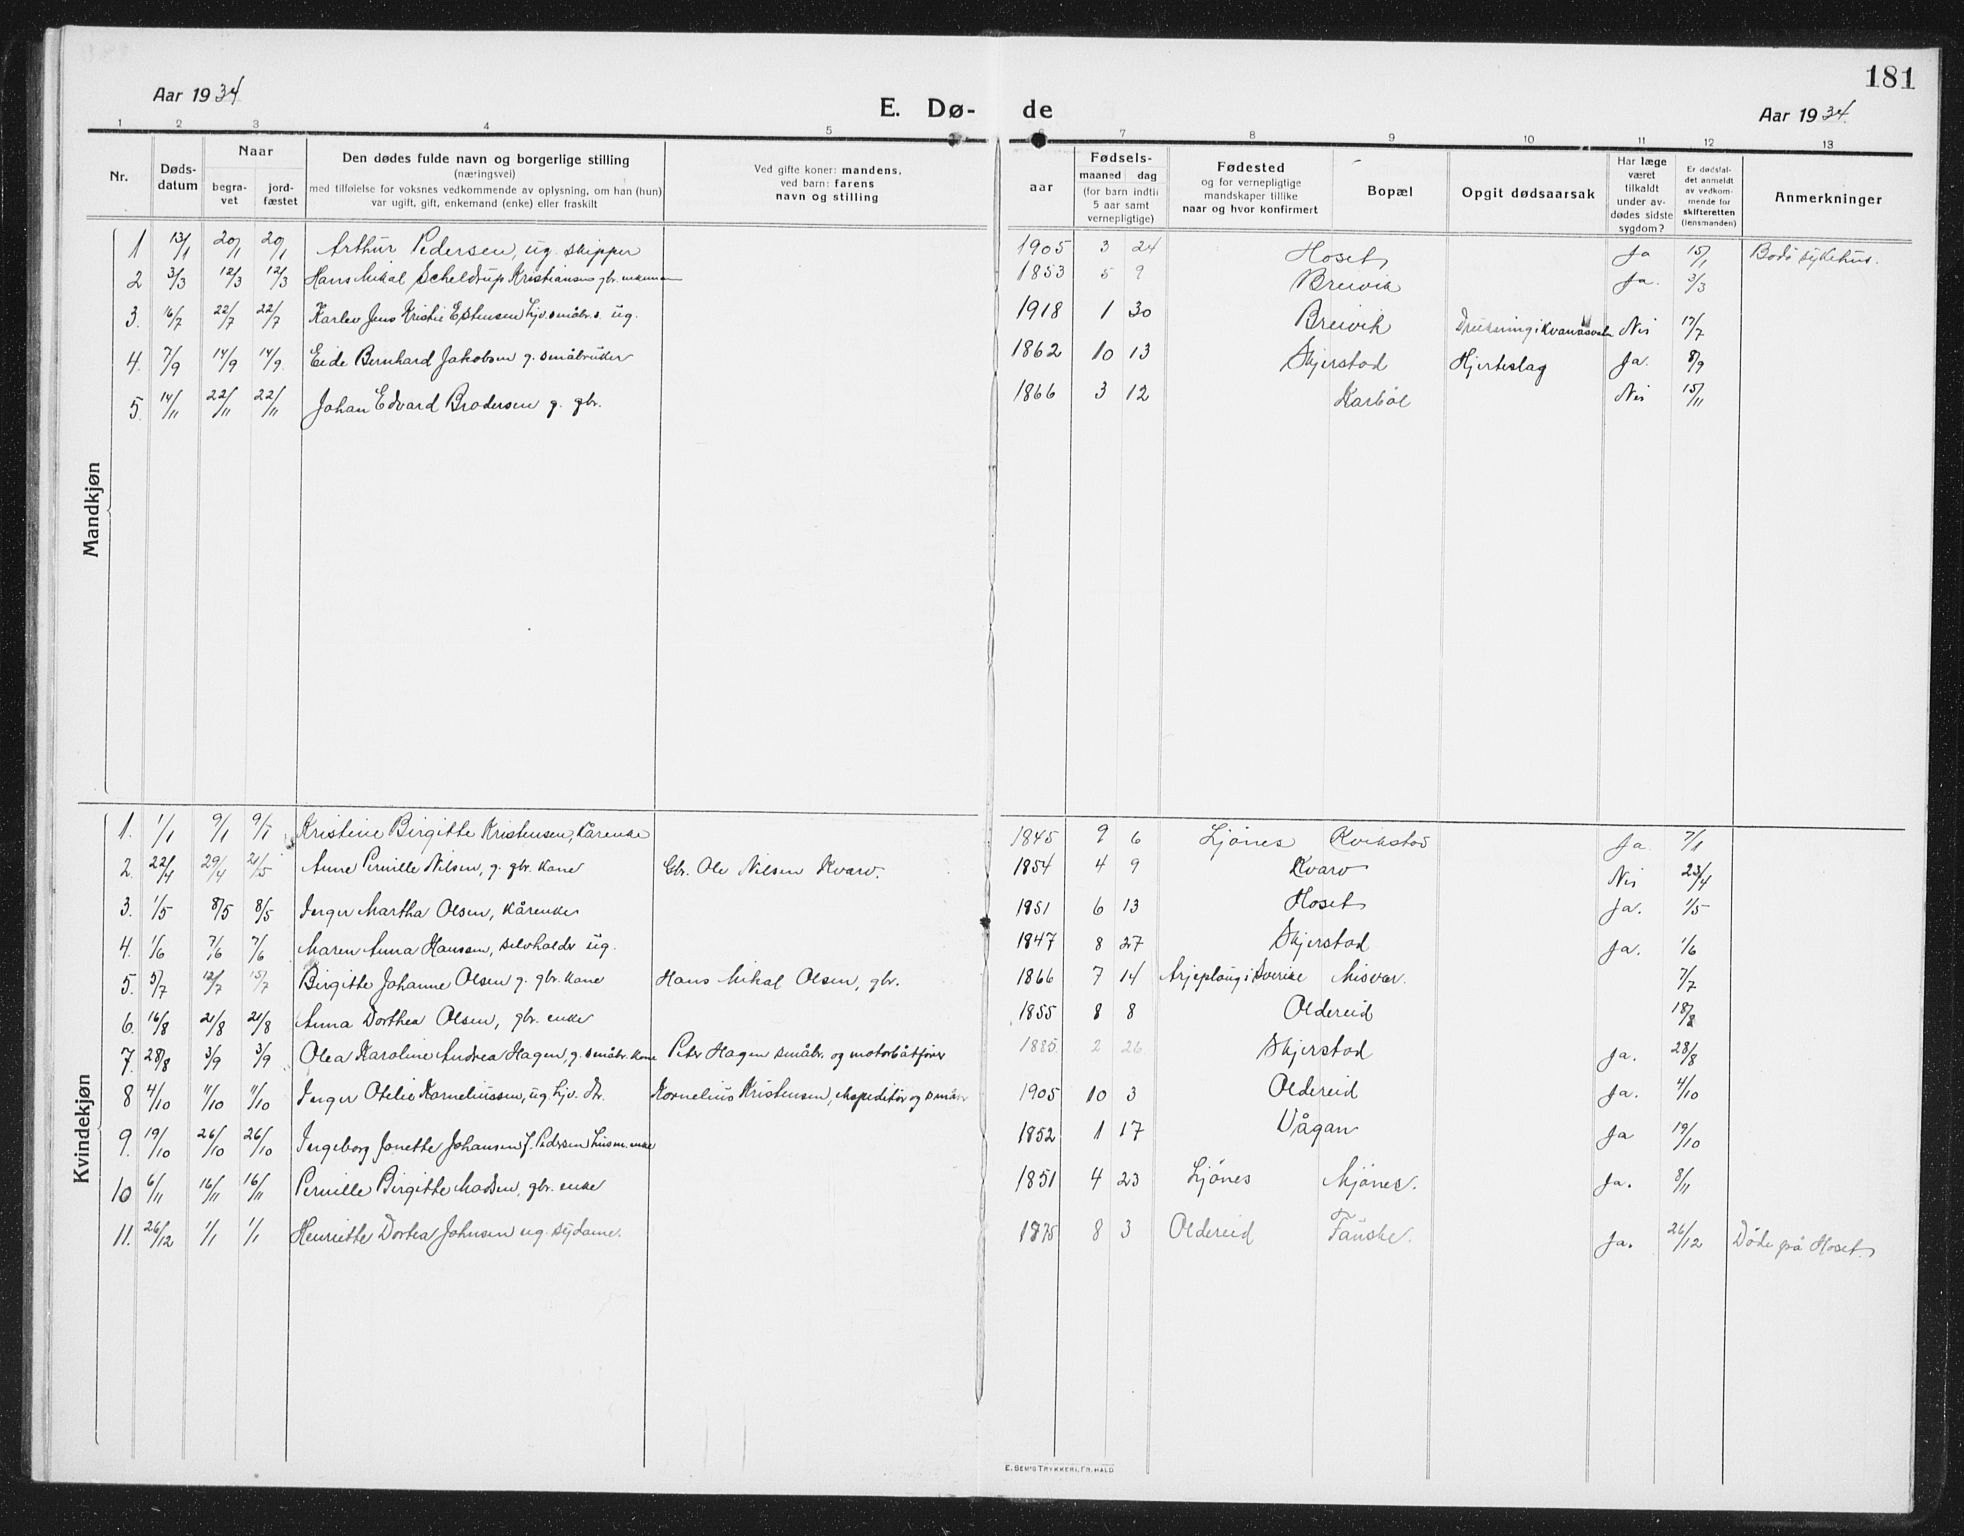 181
Aar 1934
E. Dø- de
Aar 1934.
1 2 3 4 5 6 7 8 9 10 11 12 13
Nr.
Døds-
datum
Naar
begra-
vet
jord-
fæstet
Den dødes fulde navn og borgerlige stilling
(næringsvei)
med tilføielse for voksnes vedkommende av oplysning, om han (hun)
var ugift, gift, enkemand (enke) eller fraskilt
Ved gifte koner: mandens,
ved barn: farens
navn og stilling
aar
Fødsels-
maaned dag
(for barn indtil
5 aar samt
vernepligtige)
Fødested
og for vernepligtige
mandskaper tillike
naar og hvor konfirmert
Bopæl
Opgit dødsaarsak
Har læge
været
tilkaldt
under av-
dødes sidste
sygdom?
Er dødsfal-
det anmeldt
av vedkom-
mende for
skifteretten
(lensmanden)
Anmerkninger
Mandkjøn
1 13/1 20/1 20/1 Arthur Pedersen, ug. skipper 1905 3 24 Hoset Ja 15/1 Bodø sykehus.
2 3/3 12/3 12/3 Hans Mikal Scheldrup Kristiansen gbr. 1853 5 9 Breivik Ja. 3/3
3. 16/7 22/7 22/7 Karlev Jens Kristie Estensen hjv. småbr. s. ug. 1918 1 30 Breivik Drukning i Nei 17/7
4. 7/9 14/9 14/9. Eide Bernhard Jakobsen g. småbruker 1862 10 13 Skjerstad Hjerteslag Ja. 8/9
5. 14/11 22/11 22/11 Johan Edvard Brodersen g. gbr. 1866 3 12 Karbøl Nei 15/11
Kvindekjøn
1. 1/1 9/1 9/1 Kristine Birgitte Kristensen, kårenke 1845 9 6 Ljönes Kvikstad Ja 7/1
2. 22/4 29/4 21/5 Anne Pernille Nilsen, g. gbr. kone Gbr. Ole Nilsen Kvarv. 1854 4 9 Kvarv Nei 23/4
3. 1/5 8/5 8/5 Inger Martha Olsen, kårenke 1851 6 13 Hoset Ja. 1/5
4. 1/6 7/6 7/6 Maren Anna Hansen, selvholder ug. 1847 8 27 Skjerstad Ja. 1/6
5. 5/7 12/7 15/7 Birgitte Johanne Olsen g. gbr. kone Hans Mikal Olsen, gbr. 1866 7 14 Arjeploug i Sverike Misvær. 7/7
6. 16/8 21/8 21/8 Anna Dorthea Olsen, gbr. enke 1855 8 8 Oldereid 18/8
7. 28/8 3/9 3/9 Olea Karoline Andrea Hagen, g. småbr. kone Peter Hagen småbr. og motorbåtfører 1885. 2 26 Skjerstad Ja. 28/8
8 4/10 11/10 11/10 Inger Otelie Korneliussen, ug. hjv. dtr. Kornelius Kristensen, ekspeditør og småbr 1905 10 3 Oldereid Ja. 4/10
9. 19/10 26/10 26/10 Ingeborg Jonette Johansen f. Pedersen husm. enke 1852 1 17 Vågan Ja 19/10
10 6/11 16/11 16/11 Pernille Birgitte Madsen, gbr. enke 1851 4 23 Ljönes Mjönes. Ja. 8/11
11. 26/12 1/1 1/1 Henriette Dortea Johnsen ug. sydame. 1875 8 3 Oldereid Fauske. Ja. 26/12 Døde på Hoset.
E. SEM'S TRYKKERI, FR. HALD